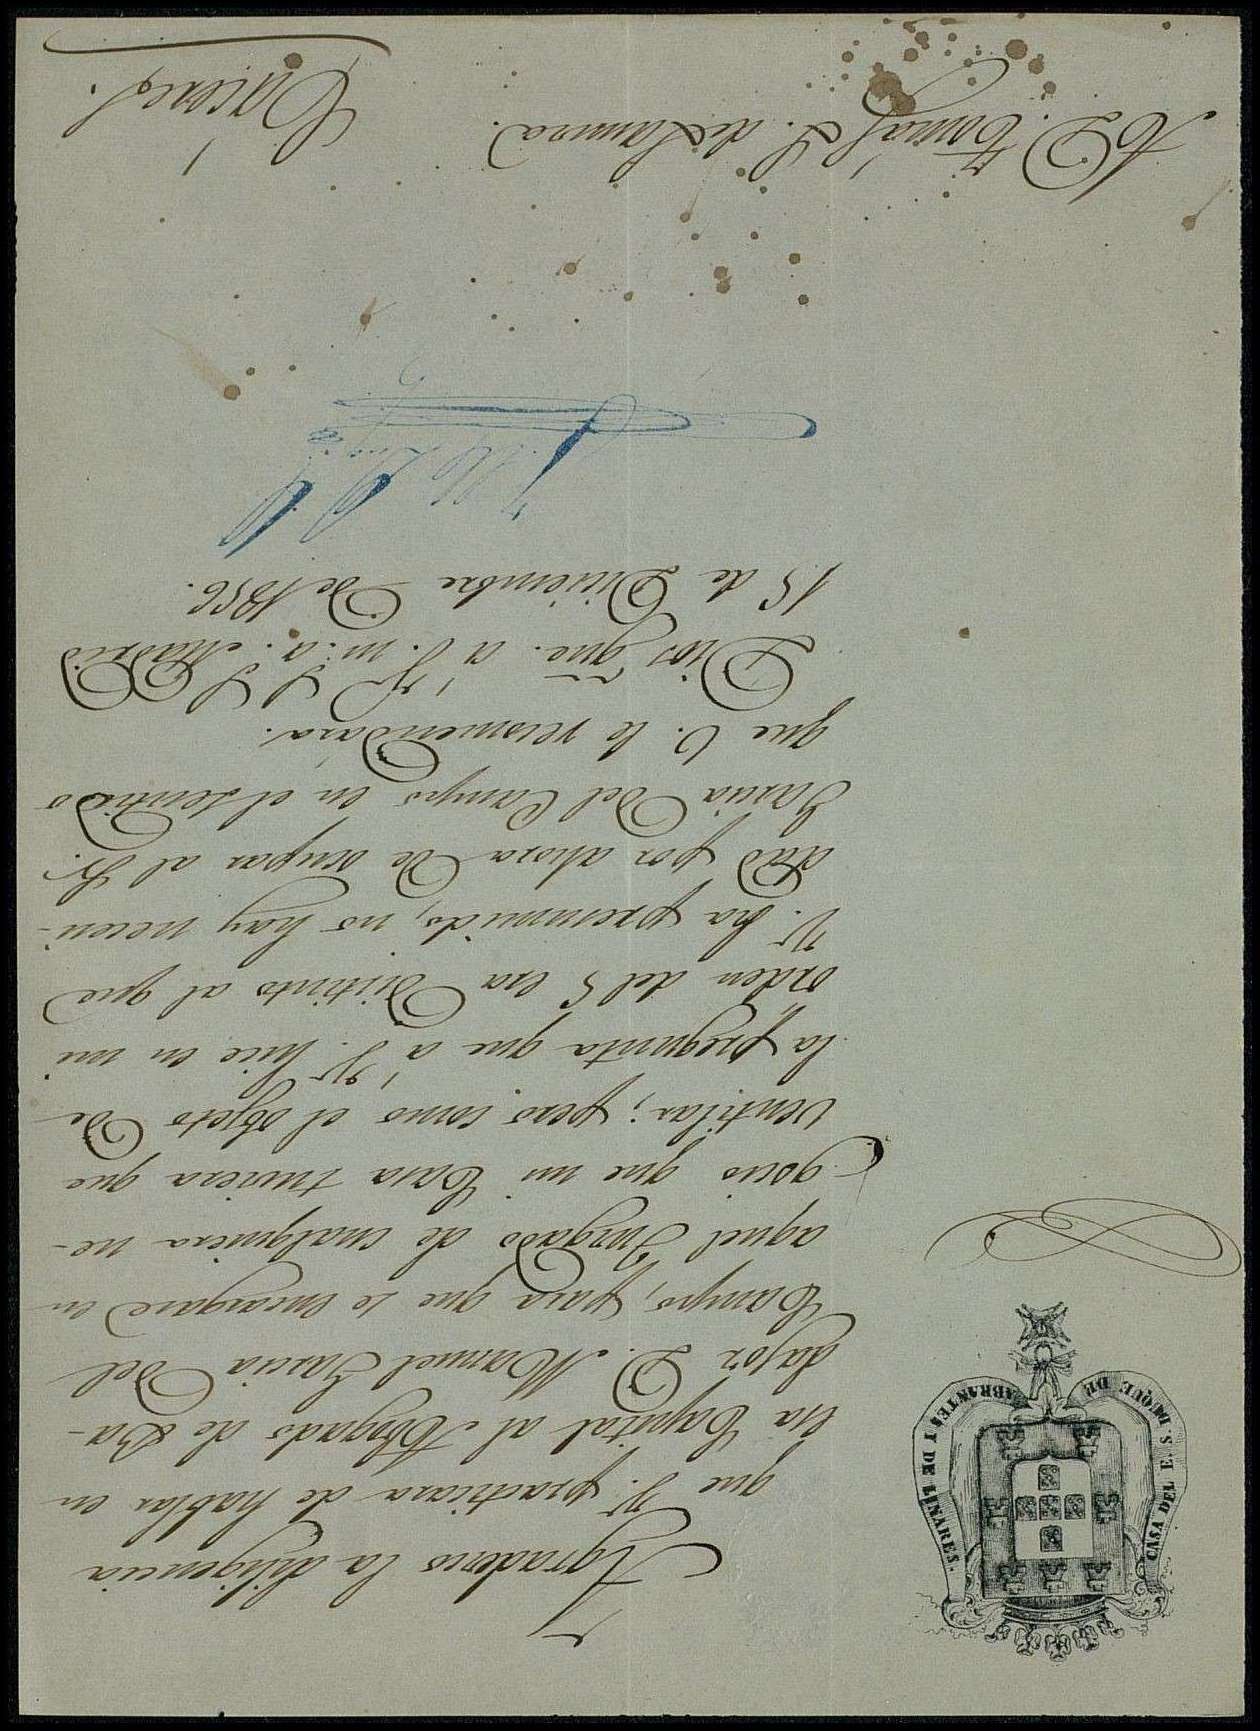 CASA DEL E. S. DUQUE DE ABRANTES I DE LINARES.
Agradezco la diligencia
que V. practicara de hablar en
esa Capital al Abogado de Ba-
dajoz D. Manuel Garcia del
Campo, para que se encargase en
aquel Juzgado de cualquiera ne-
gocio que mi Casa tuviera que
ventilar; pero como el objeto de
la pregunta que á V. hice en mi
orden del 5 era distinto al que
V. ha presumido, no hay neces-
dad por ahora de ocupar al Sr.
Garcia del Campo en el sentido
que V. le recomendára.
Dios gue. á V. m. a. Madrid
15 de Diciembre de 1856.
A D. Tomás S. de Lamora.
Cáceres.